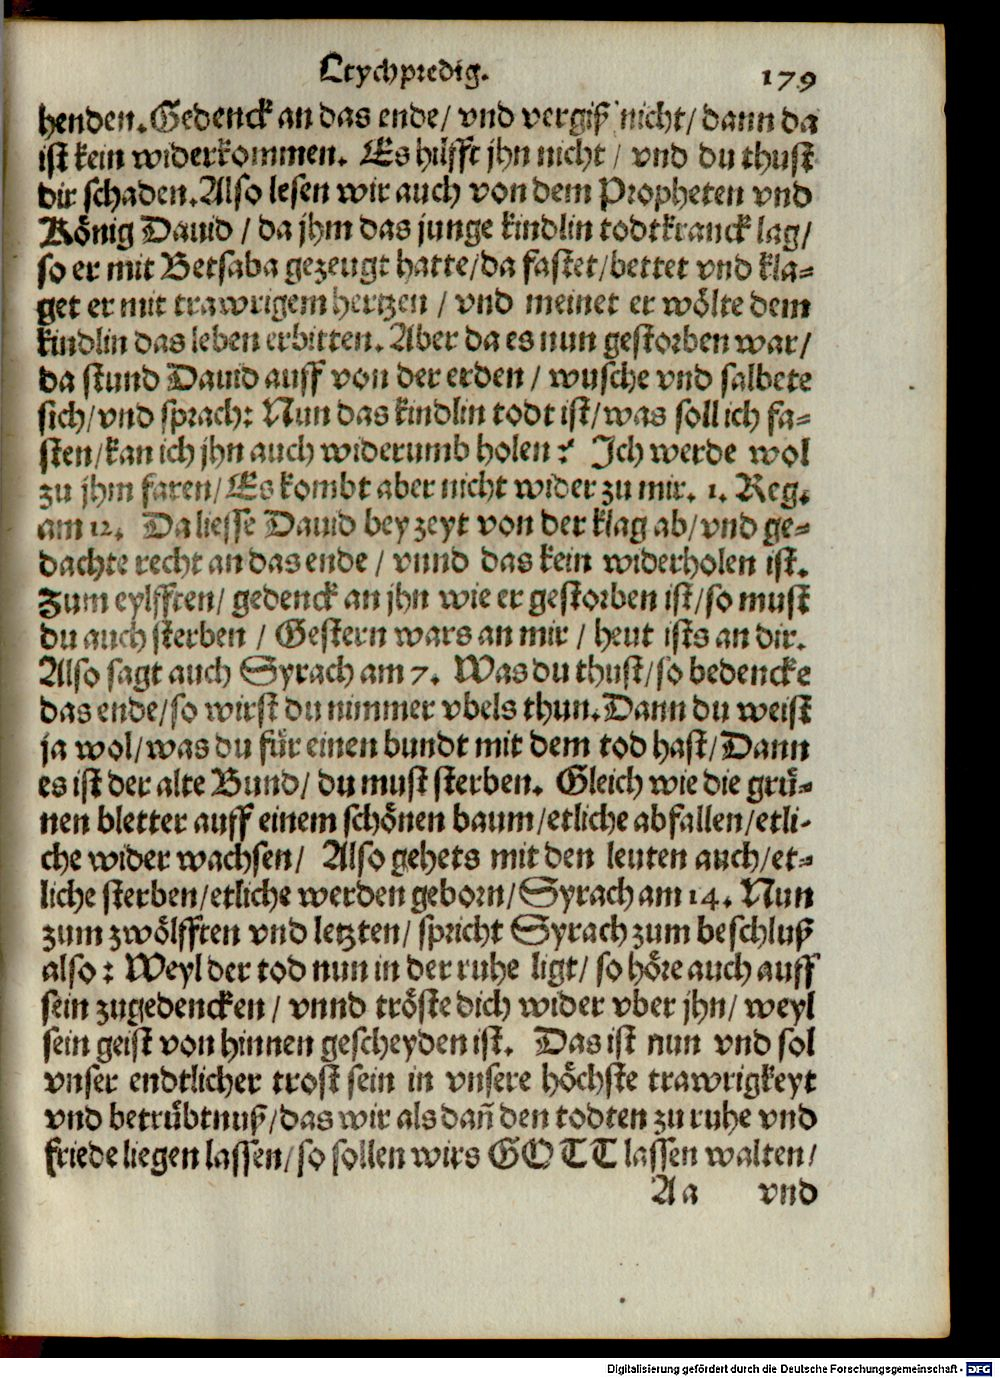 Leychpredig. 179
henden. Gedenck an das ende/ vnd vergiß nicht/ dann da
ist kein widerkommen. Es hilfft jhn nicht/ vnd du thust
dir schaden. Also lesen wir auch von dem Propheten vnd
König Dauid/ da jhm das junge kindlin todtkranck lag/
so er mit Betsaba gezeugt hatte/ da fastet/ bettet vnd kla-
get er mit trawrigem hertzen/ vnd meinet er wölte dem
kindlin das leben erbitten. Aber da es nun gestorben war/
da stund Dauid auff von der erden/ wusche vnd salbete
sich/ vnd sprach: Nun das kindlin todt ist/ was soll ich fa-
sten/ kan ich jhn auch widerumb holen? Ich werde wol
zu jhm faren/ Es kombt aber nicht wider zu mir. 1. Reg.
am 12. Da liesse Dauid bey zeyt von der klag ab/ vnd ge-
dachte recht an das ende/ vnnd das kein widerholen ist.
Zum eylfften/ gedenck an jhn wie er gestorben ist/ so must
du auch sterben/ Gestern wars an mir/ heut ists an dir.
Also sagt auch Syrach am 7. Was du thust/ so bedencke
das ende/ so wirst du nimmer vbels thun. Dann du weist
ja wol/ was du für einen bundt mit dem tod hast/ Dann
es ist der alte Bund/ du must sterben. Gleich wie die grü-
nen bletter auff einem schönen baum/ etliche abfallen/ etli-
che wider wachsen/ Also gehets mit den leuten auch/ et-
liche sterben/ etliche werden geborn/ Syrach am 14. Nun
zum zwölfften vnd letzten/ spricht Syrach zum beschluß
also: Weyl der tod nun in der ruhe ligt/ so höre auch auff
sein zugedencken/ vnnd tröste dich wider vber jhn/ weyl
sein geist von hinnen gescheyden ist. Das ist nun vnd sol
vnser endtlicher trost sein in vnsere höchste trawrigkeyt
vnd betrübtnuß/ das wir als dañ den todten zu ruhe vnd
friede liegen lassen/ so sollen wirs GOTT lassen walten/
Aa vnd
Digitalisierung gefördert durch die Deutsche Forschungsgemeinschaft - DFG